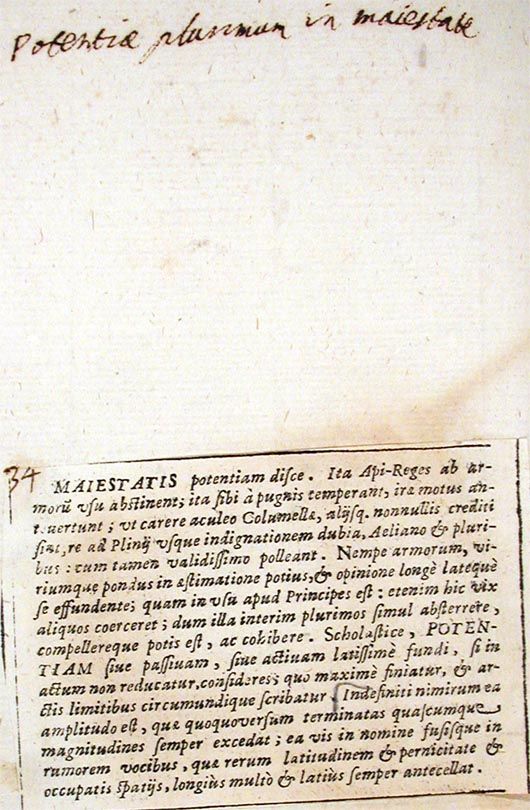 Potentiæ plurimum in maiestate
34
MAIESTATIS potentiam disce. Ita Api-Reges ab ar-
morũ vsu abstinent; ita sibi à pugnis temperant, iræ motus an-
teuertunt; vt carere aculeo Columellæ, alijsq. nonnullis crediti
sint, re ad Plinij vsque indignationem dubia, Aeliano & pluri-
bus: cum tamen validissimo polleant. Nempe armorum, vi-
riumque pondus in æstimatione potius, & opinione longè latequè
se effundente; quam in vsu apud Principes est: etenim hic vix
aliquos coerceret; dum illa interim plurimos simul absterrere,
compellereque potis est, ac cohibere. Scholastice, POTEN-
TIAM siue passiuam, siue actiuam latissimè fundi, si in
actum non reducatur, consideres; quo maximè finiatur, & ar-
ctis limitibus circumundique scribatur. Indefiniti nimirum ea
amplitudo est, quæ quoquoversum terminatas quascumque
magnitudines semper excedat; ea vis in nomine fusisque in
rumorem vocibus, quæ rerum latitudinem & pernicitate &
occupatis spatijs, longiùs multò & latiùs semper antecellat.